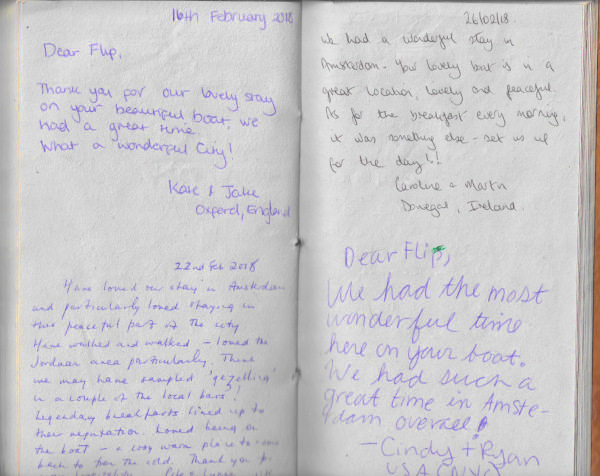 16th February 2018
Dear Flip,
Thank you for our lovely stay
on your beautiful boat, we
had a great time.
What a wonderful City!
Kate & Jake
Oxford, England
22nd Feb 2018
Have loved our stay in Amsterdam
and particularly loved staying in
this peaceful part of the city
Have walked and walked - loved the
Jordaan area particularly. Think
we may have sampled 'gezellig'
in a couple of the local bars!
Legendary breakfasts lived up to
their reputation. Loved being on
the boat - a cosy warm place to come
back to from the cold. Thank you for
26/02/18.
We had a wonderful stay in
Amsterdam. Your lovely boat is in a
great location, lovely and peaceful.
As for the breakfast every morning,
it was something else - set us up
for the day!!
Caroline & Martin
Donegal, Ireland.
Dear Flip,
We had the most
wonderful time
here on your boat.
We had such a
great time in Amste-
rdam overall!
- Cindy + Ryan
USA (NYC)